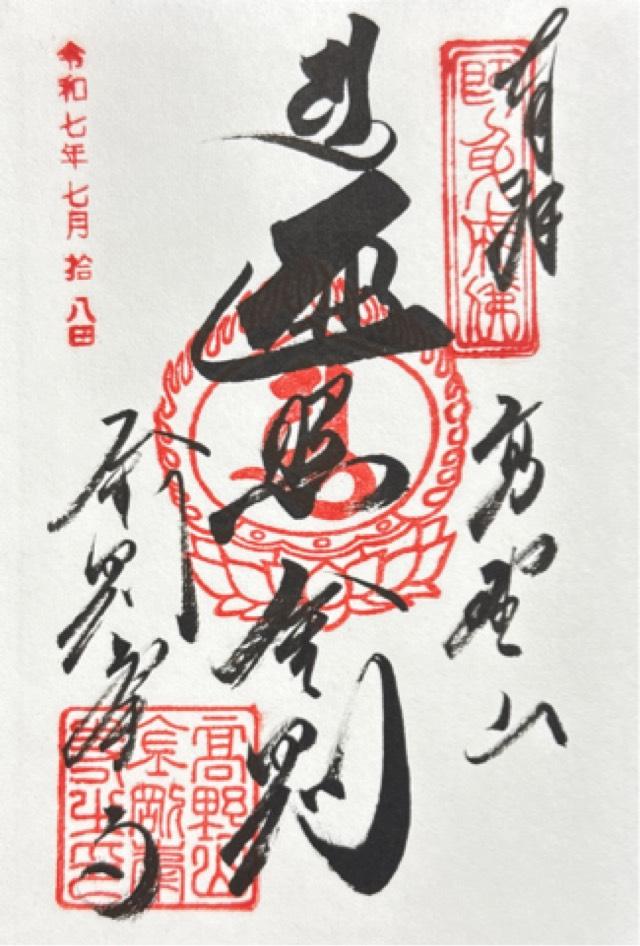 奉拝
高野山
遍照金剛
金剛峯寺
令和七年七月拾八日
高野山
金剛峯
寺之印